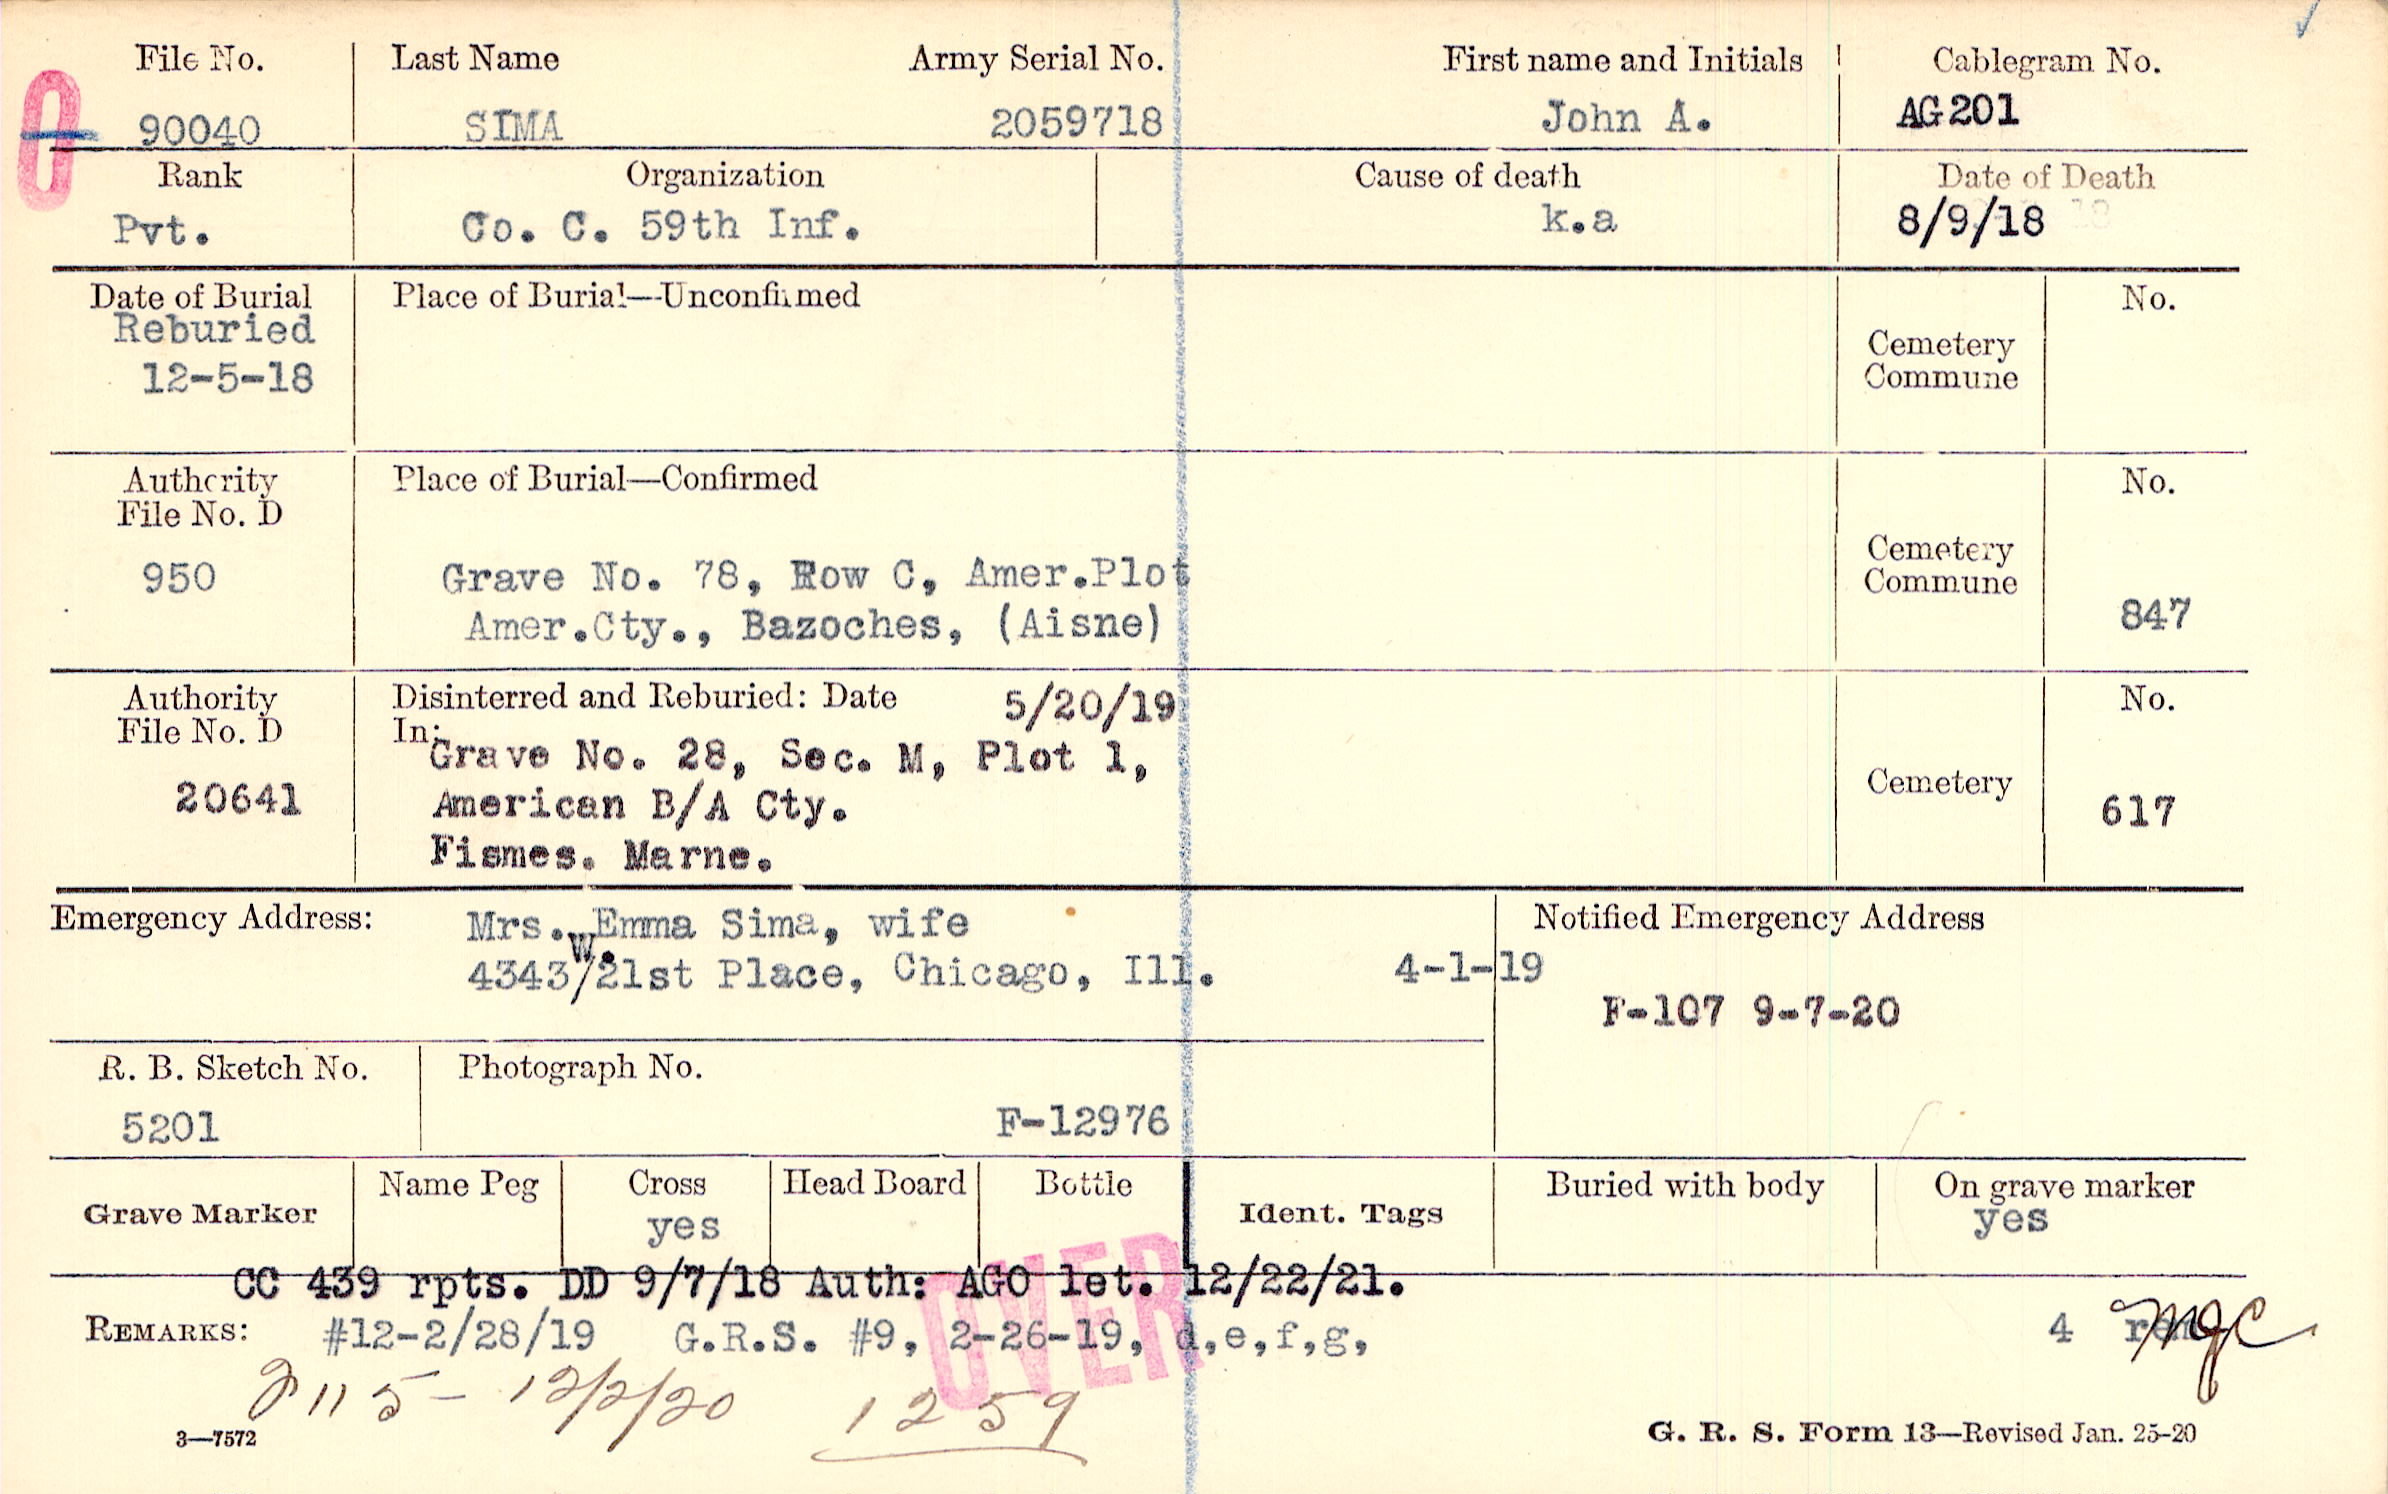 File No. Last Name Army Serial No. First name and Initials Cablegram No.
0 90040 SIMA 2059718 John A. AG201
Rank Organization Cause of death Date of Death
Pvt. Co. C. 59th Inf. k.a 8/9/18
Date of Burial Place of Burial—Unconfirmed No.
Reburied
12-5-18
Cemetery
Commune
Authority Place of Burial—Confirmed No.
File No. D
950 Grave No. 78, Row C, Amer.Plot
Amer.Cty., Bazoches, (Aisne)
Cemetery
Commune
847
Authority Disinterred and Reburied: Date 5/20/19 No.
File No. D In:
Grave No. 28, Sec. M, Plot 1,
20641 American B/A Cty. Cemetery 617
Fismes. Marne.
Emergency Address: Mrs. Emma Sima, wife Notified Emergency Address
W.
4343/21st Place, Chicago, Ill. 4-1-19
F-107 9-7-20
R. B. Sketch No. Photograph No.
5201 F-12976
Grave Marker Name Peg Cross Head Board Bottle Ident. Tags Buried with body On grave marker
yes yes
CC 439 rpts. DD 9/7/18 Auth: AGO let. 12/22/21.
OVER
REMARKS: #12-2/28/19 G.R.S. #9, 2-26-19, d,e,f,g, 4
115 - 12/2/20 1259
3—7572 G. R. S. Form 13—Revised Jan. 25-20